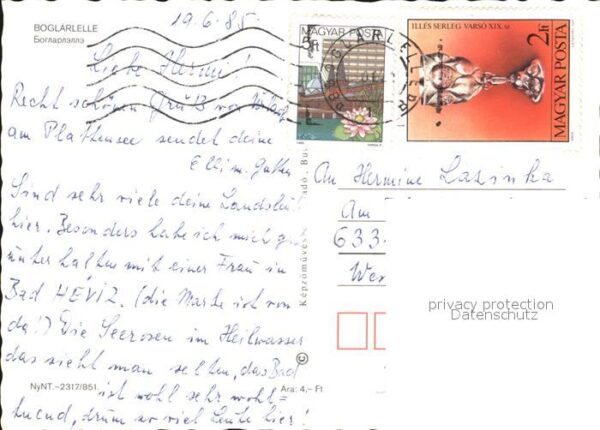 19.6.85
BOGLÁRLELLE
Богларлэллэ
Liebe Hermi!
Recht schönen Gruß vom
am Plattensee sendet deine
Elli m.
Sind sehr viele deine Landsleut
hier. Besonders habe ich mich gut
unterhalten mit einer Frau in
Bad HÉVIZ. (die Marke ist von
da!) Die Seerosen im Heilwasser
das sieht man selten, das Bad
ist wohl sehr wohl=
tuend, drum so viel Leute hier!
NyNT.-2317/851.
Ara: 4,- Ft
MAGYAR POSTA
5Ft
BOGLÁRLELLE
ILLÉS SERLEG VARSÓ XIX. sz
2Ft
MAGYAR POSTA
An Hermine Lasinka
Am
633
Wes
Képzőművés
adó, Bu
©
privacy protection
Datenschutz